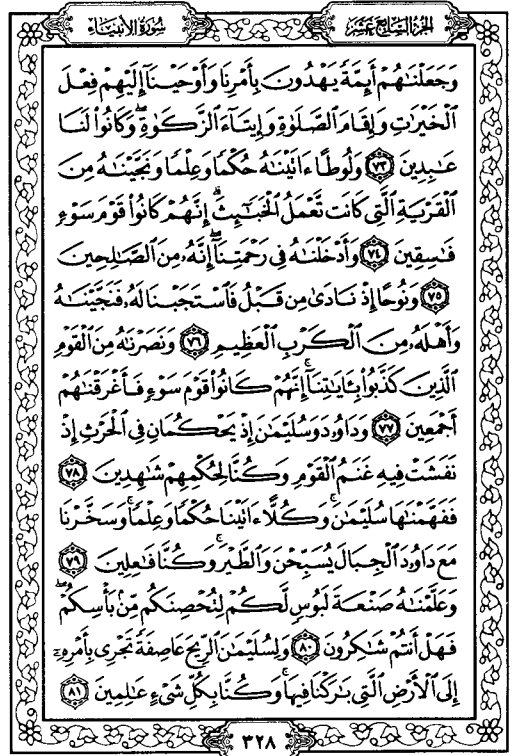 سُورَةُ الأَنْبِيَاءِ
الجُزْءُ السَّابِعُ عَشَرَ
وَجَعَلْنَٰهُمْ أَئِمَّةً يَهْدُونَ بِأَمْرِنَا وَأَوْحَيْنَآ إِلَيْهِمْ فِعْلَ
ٱلْخَيْرَٰتِ وَإِقَامَ ٱلصَّلَوٰةِ وَإِيتَآءَ ٱلزَّكَوٰةِ ۖ وَكَانُوا۟ لَنَا
عَٰبِدِينَ ٧٣ وَلُوطًا ءَاتَيْنَٰهُ حُكْمًا وَعِلْمًا وَنَجَّيْنَٰهُ مِنَ
ٱلْقَرْيَةِ ٱلَّتِى كَانَت تَّعْمَلُ ٱلْخَبَٰٓئِثَ ۗ إِنَّهُمْ كَانُوا۟ قَوْمَ سَوْءٍ
فَٰسِقِينَ ٧٤ وَأَدْخَلْنَٰهُ فِى رَحْمَتِنَآ ۖ إِنَّهُۥ مِنَ ٱلصَّٰلِحِينَ
٧٥ وَنُوحًا إِذْ نَادَىٰ مِن قَبْلُ فَٱسْتَجَبْنَا لَهُۥ فَنَجَّيْنَٰهُ
وَأَهْلَهُۥ مِنَ ٱلْكَرْبِ ٱلْعَظِيمِ ٧٦ وَنَصَرْنَٰهُ مِنَ ٱلْقَوْمِ
ٱلَّذِينَ كَذَّبُوا۟ بِـَٔايَٰتِنَآ ۚ إِنَّهُمْ كَانُوا۟ قَوْمَ سَوْءٍ فَأَغْرَقْنَٰهُمْ
أَجْمَعِينَ ٧٧ وَدَاوُۥدَ وَسُلَيْمَٰنَ إِذْ يَحْكُمَانِ فِى ٱلْحَرْثِ إِذْ
نَفَشَتْ فِيهِ غَنَمُ ٱلْقَوْمِ وَكُنَّا لِحُكْمِهِمْ شَٰهِدِينَ ٧٨
فَفَهَّمْنَٰهَا سُلَيْمَٰنَ ۚ وَكُلًّا ءَاتَيْنَا حُكْمًا وَعِلْمًا ۚ وَسَخَّرْنَا
مَعَ دَاوُۥدَ ٱلْجِبَالَ يُسَبِّحْنَ وَٱلطَّيْرَ ۚ وَكُنَّا فَٰعِلِينَ ٧٩
وَعَلَّمْنَٰهُ صَنْعَةَ لَبُوسٍ لَّكُمْ لِتُحْصِنَكُم مِّنۢ بَأْسِكُمْ ۖ
فَهَلْ أَنتُمْ شَٰكِرُونَ ٨٠ وَلِسُلَيْمَٰنَ ٱلرِّيحَ عَاصِفَةً تَجْرِى بِأَمْرِهِۦٓ
إِلَى ٱلْأَرْضِ ٱلَّتِى بَٰرَكْنَا فِيهَا ۚ وَكُنَّا بِكُلِّ شَىْءٍ عَٰلِمِينَ ٨١
٣٢٨